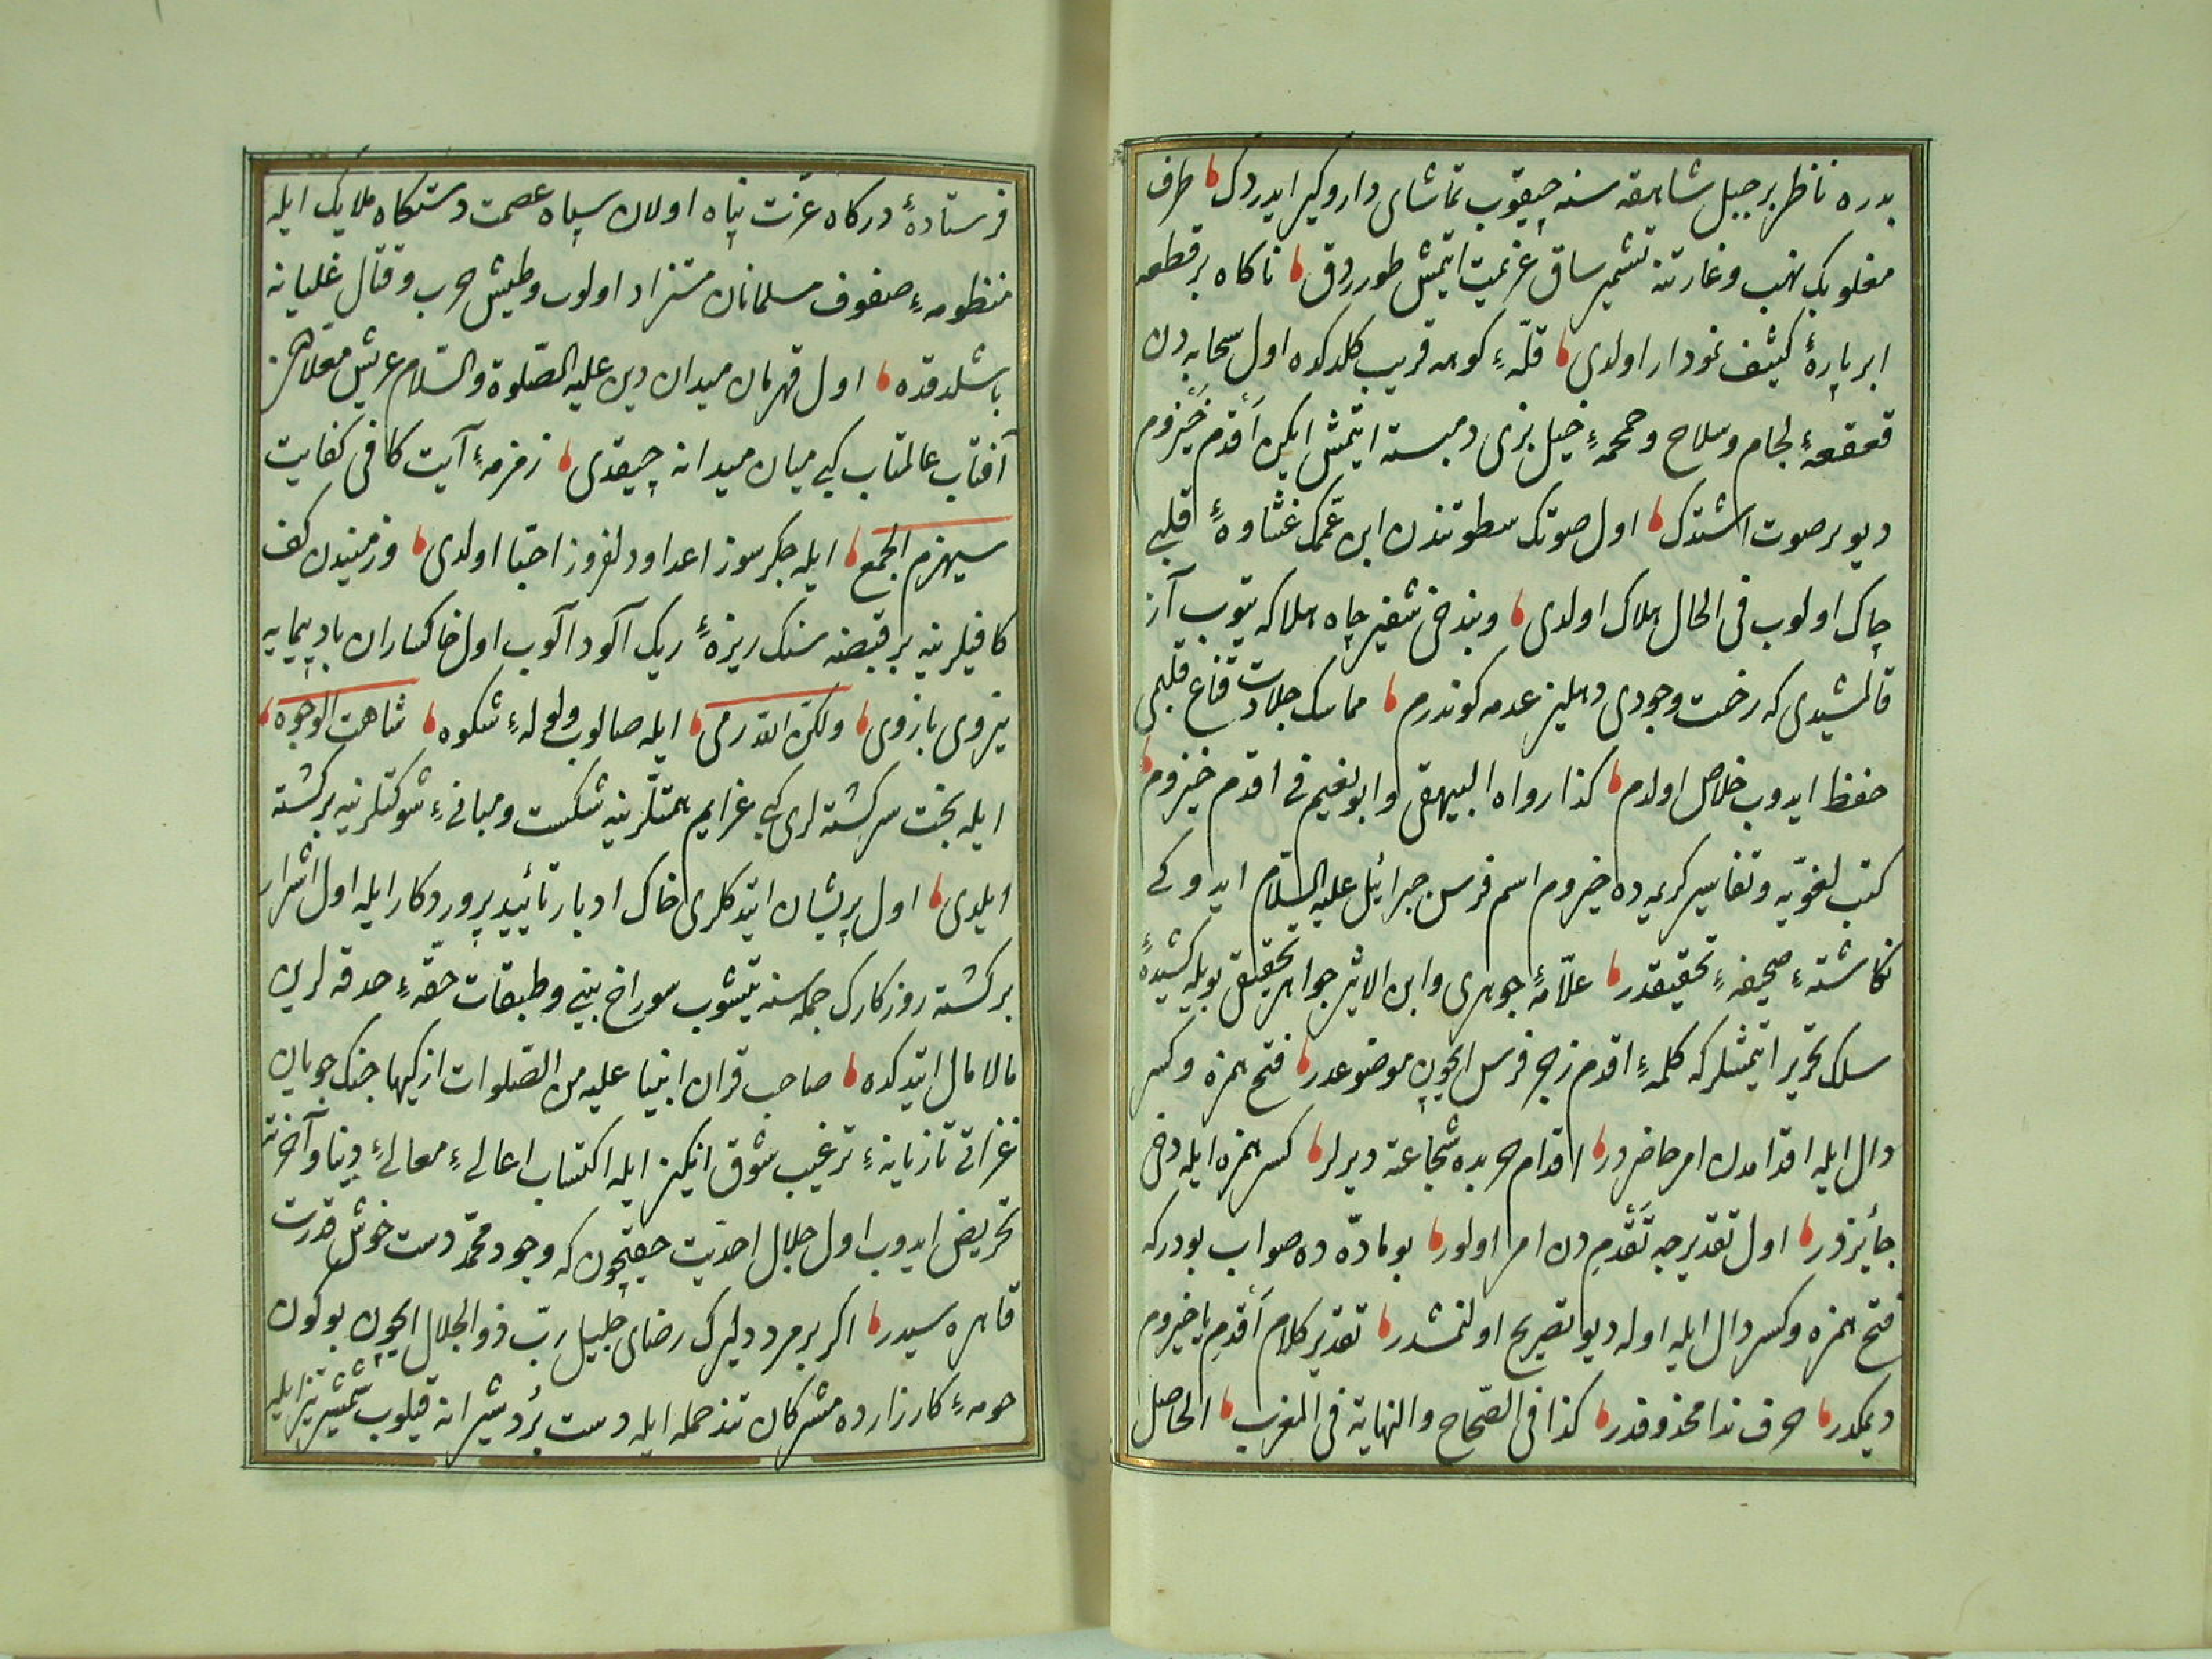 بدره ناظر بر جبل شاهقه سنه چیقوب تماشای دار و کیر ایدردك طرف
مغلوبك نهب و غارتنه تشمیر ساق عزیمت ایتمش طوررق ناکاه بر قطعه
ابر پارهٔ کثیف نمودار اولدی قلّهٔ کوهه قریب کلدکده اول سحابه دن
قعقعهٔ لجام و سلاح و حمحمهٔ خیل بزی دمبسته ایتمش ایکن أَقدم خَیزوم
دیو بر صوت اشتدك اول صوتك سطوتندن ابن عمّك غشاوهٔ قلبی
چاك اولوب فی الحال هلاك اولدی و بنده خی شفیر چاه هلاکه یتوب آز
قالمشیدی که رخت وجودی دهلیز عدمه کوندرم مماسك جلادت قناع قلبمی
حفظ ایدوب خلاص اولدم کذا رواه البیهقی و ابو نعیم فی اقدم خیزوم
کتب لغویّه و تفاسیر کریمه ده خیزوم اسم فرس جبرائیل علیه السلام ایدوکی
نکاشتهٔ صحیفهٔ تحقیقدر علّامهٔ جوهری و ابن الاثیر جواهر تحقیقی بویله کشیدهٔ
سلك تحریر ایتمشلر که کلمهٔ اقدم زجر فرس ایچون موضوعدر فتح همزه و کسر
دال ایله اقدامدن امر حاضردر اقدام حربده شجاعته دیرلر کسر همزه ایله دخی
جائزدر اول تقدیرجه تَقَدُّم دن امر اولور بو ماده ده صواب بودر که
فتح همزه و کسر دال ایله اوله دیو تصریح اولنمشدر تقدیر کلام أَقدِم یا خیزوم
دیمکدر حرف ندا محذوفدر کذا فی الصّحاح و النهایة فی المغرب الحاصل
فرستادهٔ درکاه عزّت پناه اولان سپاه عصمت دستکاه ملایك ایله
منظومهٔ صفوف مسلمانان متزاد اولوب و طیش حرب و قتال غلیانه
باشلدقده اول قهرمان میدان دین علیه الصّلوة والسّلام عریش معلّادن
آفتاب عالمتاب کبی میان میدانه چیقدی زمزمهٔ آیت کافی کفایت
سیهزم الجمع ایله جکرسوز اعدا و دلفروز احبّا اولدی و زمیندن کف
کافیلرینه بر قبضه سنك ریزهٔ ریك آلود آلوب اول خاکساران بادپیمایه
نیروی بازوی ولکنّ اللّه رمی ایله صالوب ولولهٔ شکوه شاهت الوجوه
ایله بخت سرکشته لری کبی عزایم همتلرینه شکست و مبانیٔ شوکتلرینه برکشته
ایلدی اول پریشان ایتدکلری خاك ادبار تأیید پروردکار ایله اول اشرار
برکشته روزکارك جمله سنه یتیشوب سوراخ بینی و طبقات حقّهٔ حدقه لرین
مالامال ایتدکده صاحب قران انبیا علیه من الصّلوات ازکیها جنك جویان
غزاتی تازیانهٔ ترغیب شوق انکیز ایله اکتساب اعالیٔ معالیٔ دنیا و آخرته
تحریض ایدوب اول جلال احدیت حقیچون که وجود محمّد دست خوش قدرت
قاهره سیدر اکر بر مرد دلیرك رضای جلیل ربّ ذوالجلال ایچون بوکون
حومهٔ کارزارده مشرکان تند حمله ایله دست بُرد شیرانه قیلوب شمشیر تیز ایله